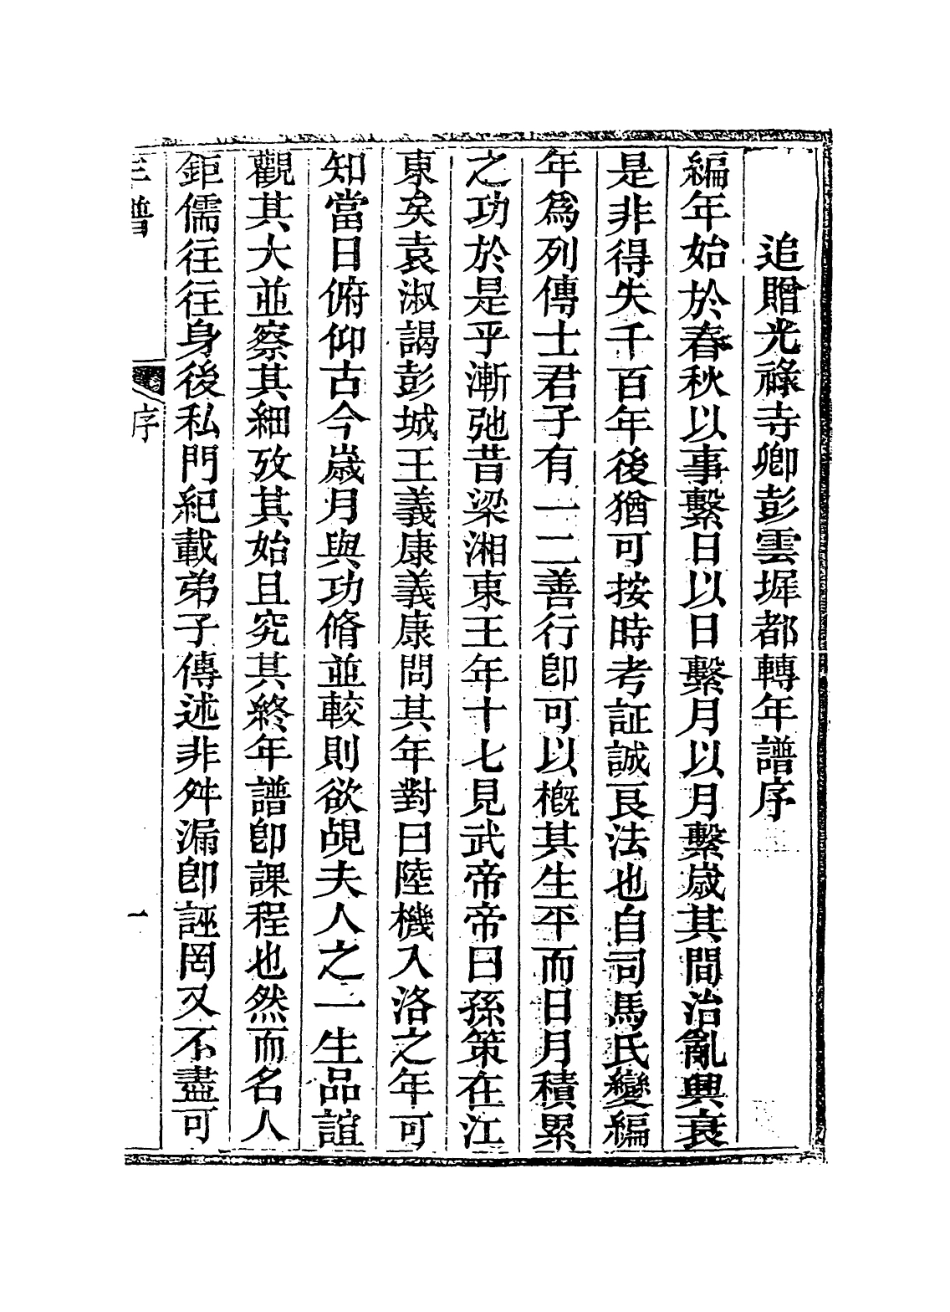 追贈光祿寺卿彭雲墀都轉年譜序
編年始於春秋以事繫日以日繫月以月繫歲其間治亂興衰
是非得失千百年後猶可按時考証誠良法也自司馬氏變編
年爲列傳士君子有一二善行卽可以槪其生平而日月積累
之功於是乎漸弛昔梁湘東王年十七見武帝帝曰孫策在江
東矣袁淑謁彭城王義康義康問其年對曰陸機入洛之年可
知當日俯仰古今歲月與功脩並較則欲覘夫人之一生品誼
觀其大並察其細攷其始且究其終年譜卽課程也然而名人
鉅儒往往身後私門紀載弟子傳述非舛漏卽誣罔又不盡可
年譜
序
一